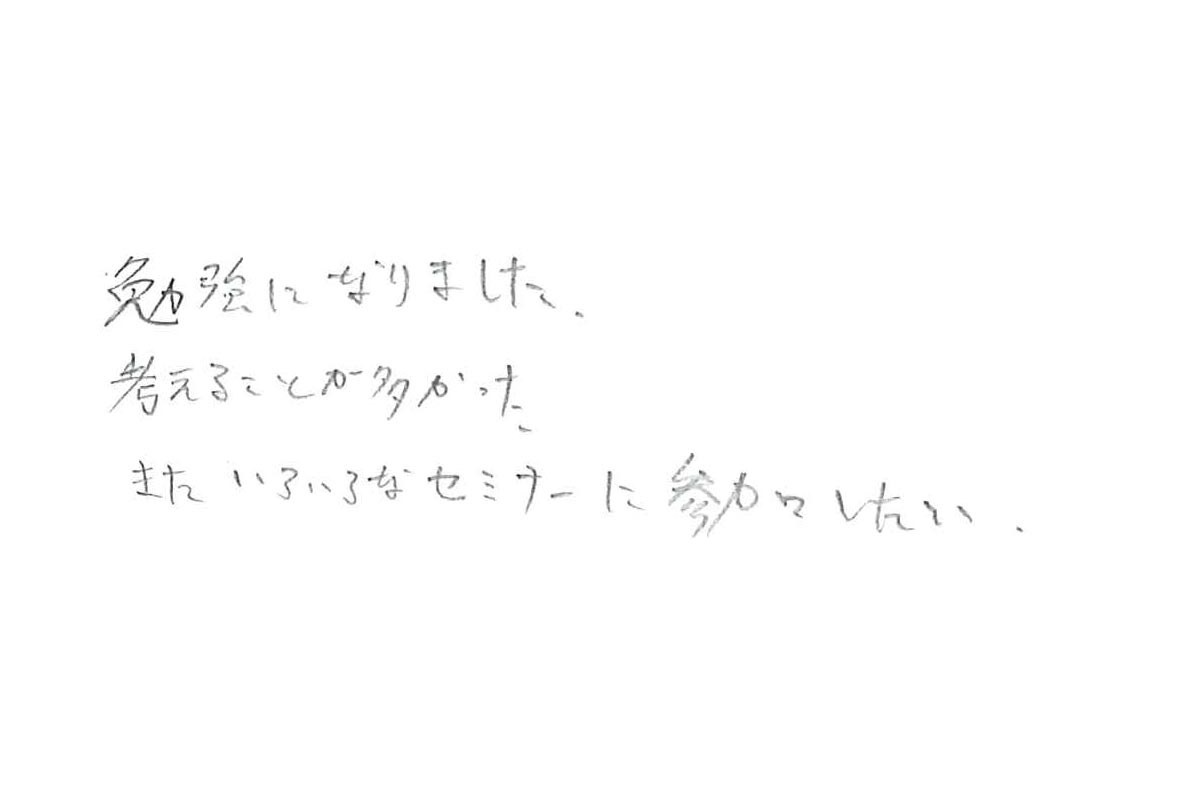 勉強になりました.
考えることが多かった
またいろいろなセミナーに参加したい.